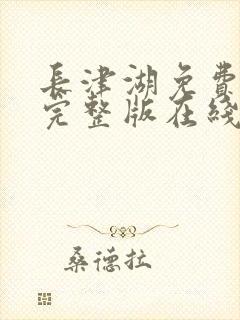 長津湖免費
完整版在綫
桑德拉